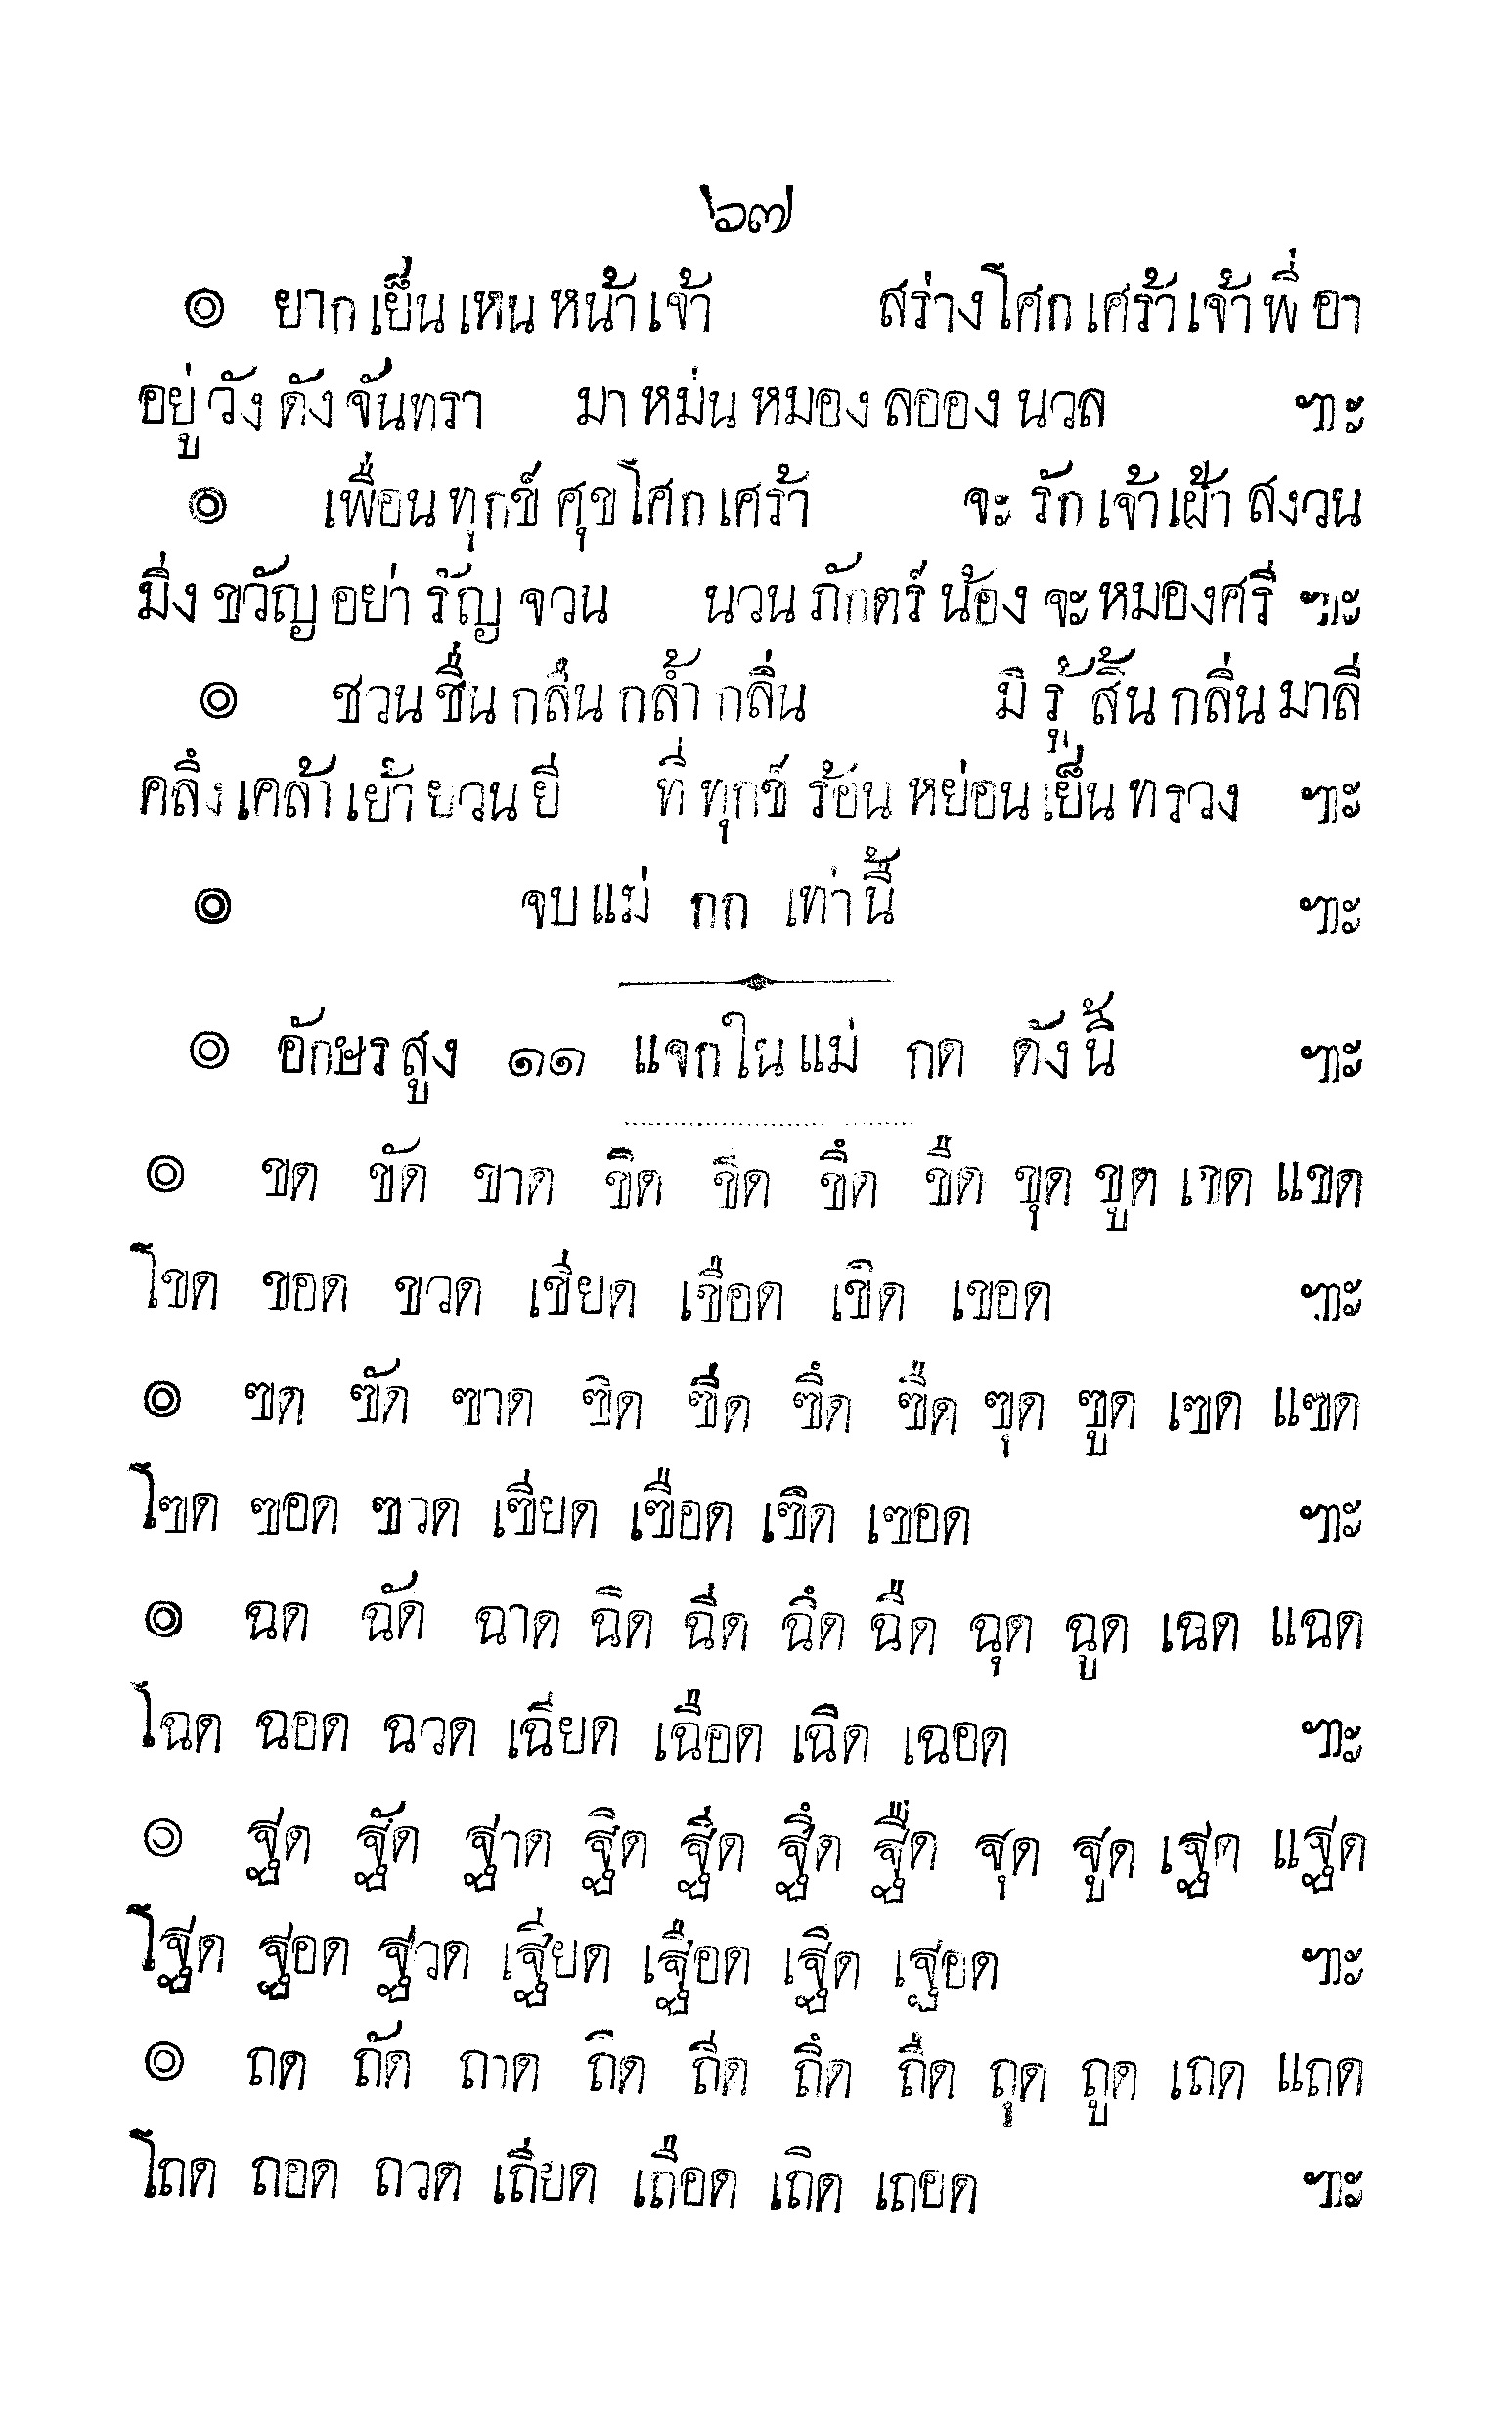 ๖๗
๏ ยาก เย็น เหน หน้า เจ้า สร่าง โศก เศร้า เจ้า พี่ อา
อยู่ วัง ดัง จันทรา มา หม่น หมอง ลออง นวล ฯะ
๏ เพื่อน ทุกข์ ศุข โศก เศร้า จะ รัก เจ้า เฝ้า สงวน
มิ่ง ขวัญ อย่า รัญ จวน นวน ภักตร์ น้อง จะ หมอง ศรี ฯะ
๏ ชวน ชื่น กลืน กล้ำ กลิ่น มิ รู้ สิ้น กลิ่น มาลี
คลึง เคล้า เย้า ยวน ยี ที่ ทุกข์ ร้อน หย่อน เย็น ทรวง ฯะ
๏ จบ แม่ กก เท่า นี้ ฯะ
๏ อักษร สูง ๑๑ แจก ใน แม่ กด ดัง นี้ ฯะ
๏ ขด ขัด ขาด ขิด ขีด ขึด ขืด ขุด ขูด เขด แขด
โขด ขอด ขวด เขียด เขือด เขิด เขอด ฯะ
๏ ฃด ฃัด ฃาด ฃิด ฃีด ฃึด ฃืด ฃุด ฃูด เฃด แฃด
โฃด ฃอด ฃวด เฃียด เฃือด เฃิด เฃอด ฯะ
๏ ฉด ฉัด ฉาด ฉิด ฉีด ฉึด ฉืด ฉุด ฉูด เฉด แฉด
โฉด ฉอด ฉวด เฉียด เฉือด เฉิด เฉอด ฯะ
๏ ฐด ฐัด ฐาด ฐิด ฐีด ฐึด ฐืด ฐุด ฐูด เฐด แฐด
โฐด ฐอด ฐวด เฐียด เฐือด เฐิด เฐอด ฯะ
๏ ถด ถัด ถาด ถิด ถีด ถึด ถืด ถุด ถูด เถด แถด
โถด ถอด ถวด เถียด เถือด เถิด เถอด ฯะ